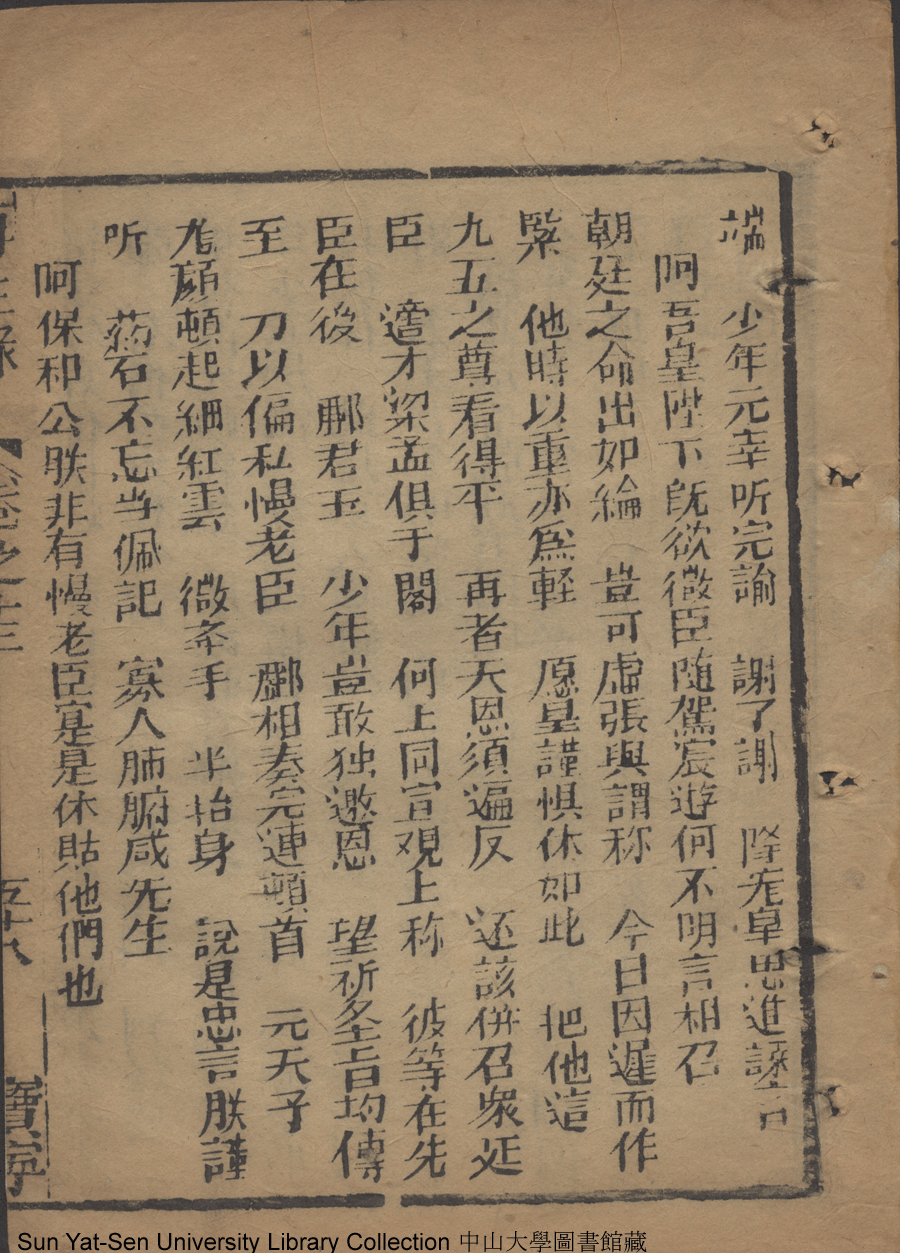 端　少年元宰听完諭　謝了謝　階先皐思進謹言
阿吾皇陛下既欲微臣随駕宸遊何不明言相召
朝廷之命出如綸　豈可虚張與謂称　今日因遲而作
緊　他時以重亦為輕　愿皇謹惧休如此　把他這
九五之尊看得平　再者天恩須遍反　还該併召衆廷
臣　　才梁孟俱于閣　何上同宣观上称　彼等在先
臣在後　郦君玉　少年豈敢独邀恩　望祈圣旨均傳
至　刀以偏私慢老臣　酈相奏完連頓首　元天子
龙顔頓起細紅雲　微牽手　半抬身　說是忠言朕謹
听　葯石不忘当佩記　寡人肺腑咸先生
呵保和公朕非有慢老臣寔是休貼他們也
卷之十三
五十八
寶寧
Sun Yat-Sen University Library Collection 中山大學圖書館藏